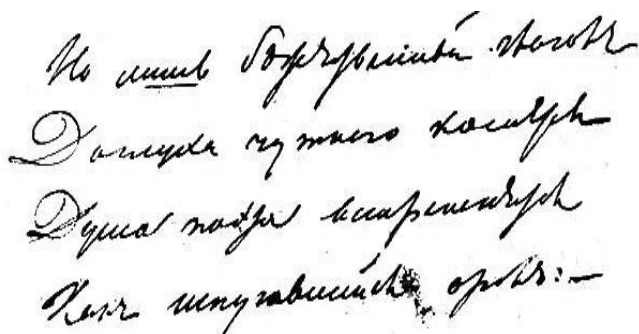 Но лишь божественный глаголъ
До слуха чуткого коснется
Душа поэта встрепенется
Какъ испугавшийся орелъ:—